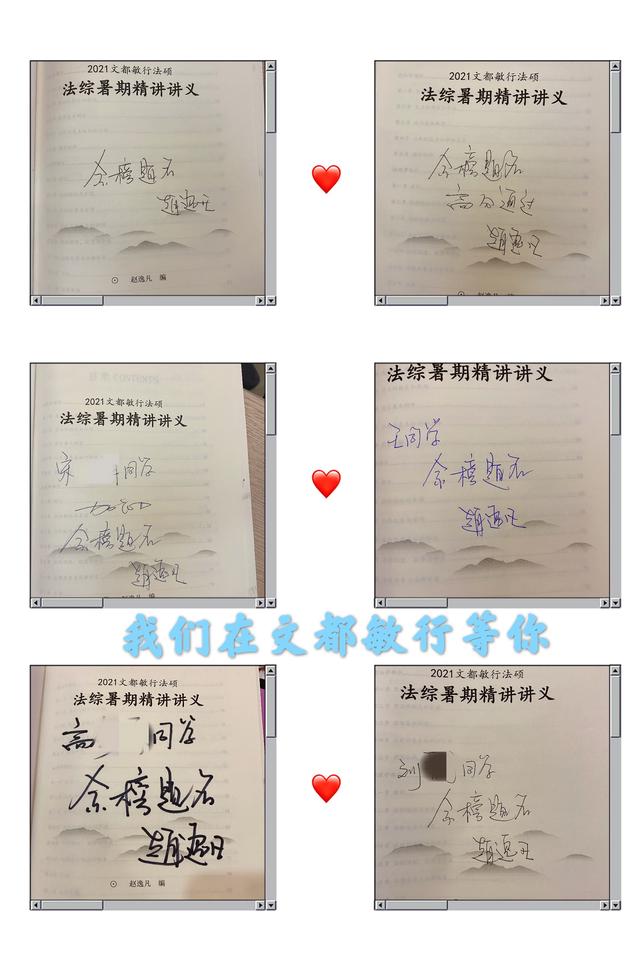 2021文都敏行法硕
法综暑期精讲讲义
金榜题名
赵逸凡
赵逸凡 编
2021文都敏行法硕
法综暑期精讲讲义
金榜题名
高分通过
赵逸凡
2021文都敏行法硕
法综暑期精讲讲义
宋 同学
加油
金榜题名
赵逸凡
赵逸凡 编
法综暑期精讲讲义
王同学
金榜题名
赵逸凡
我们在文都敏行等你
2021文都敏行法硕
法综暑期精讲讲义
高 同学
金榜题名
赵逸凡
赵逸凡 编
2021文都敏行法硕
法综暑期精讲讲义
刘 同学
金榜题名
赵逸凡